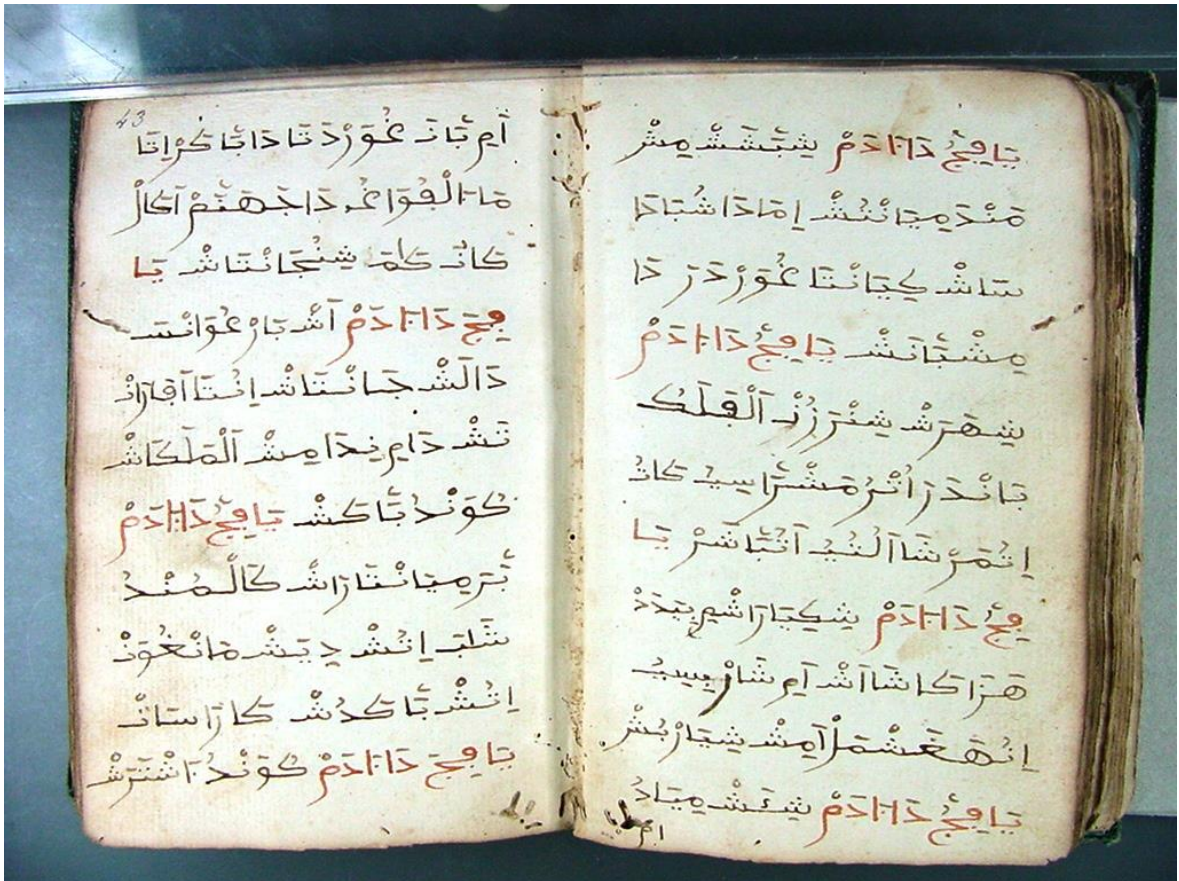 يَا ڢِجُّ دَاءَادَمْ شِبَّشَشْ مِشْ
مَنْدَمِيَانْتُشْ اِمَادَاشُبَادَا
سَاشْ كِيَانْتَا غُوَرْدَرَ دَا
مِشْبَّانَشْ يَا ڢِجُّ دَاءَادَمْ
شِهَرَشْ شِنْرَزُنْ اَلْڢَلَكُ
بَانْدَرَ اُتْرُمَشْتَّرَاسِيُ كَاتُ
اِتُمَرْشَا اَلْتُيُ اَتُبَّاشَرْ يَا
ڢِجُّ دَاءَادَمْ شِكِيَارَاشْمِبِيَدَدْ
هَرَا كَاشَا اَشْ اَمِ شَارْبِسِيُ
اِنُهَغَشْ مَلْ اَمِشْ شِيَارْبُشْ
يَا ڢِجُّ دَاءَادَمْ شِتَشْ مِيَادُ
اَمِ
43
اَمِ بَّانَ غُوَرْدَتَا دَابَّاكَرْ اِتَا
مَاءَالْڢُوَاغُ دَاجَهَنَّمْ اَكَالْ
كَانَ كَمَرَ شِنُجَانْتَاشْ يَا
ڢِجُّ دَاءَادَمْ اَشْ بَارْغُوَانْسَ
دَالَشْ جَانْتَاشْ اِنُتَا اَڢَارَانْ
تَشْ دَامِ نِدَامِشْ اَلْمَلَكَاشْ
كُوَنْدُ بَّاكَشْ يَا ڢِجُّ دَاءَادَمْ
بَّرَمِيَانْتَارَاشْ كَالْمُنْدُ
شَلْبَ اِتُشْ دِيَشْ مَانْغُوَنْ
اِتُشْ بَّاكَدُشْ كَارَاسَانْ
يَا ڢِجُّ دَاءَادَمْ كُوَنْدُ اَشْتَرَشْ